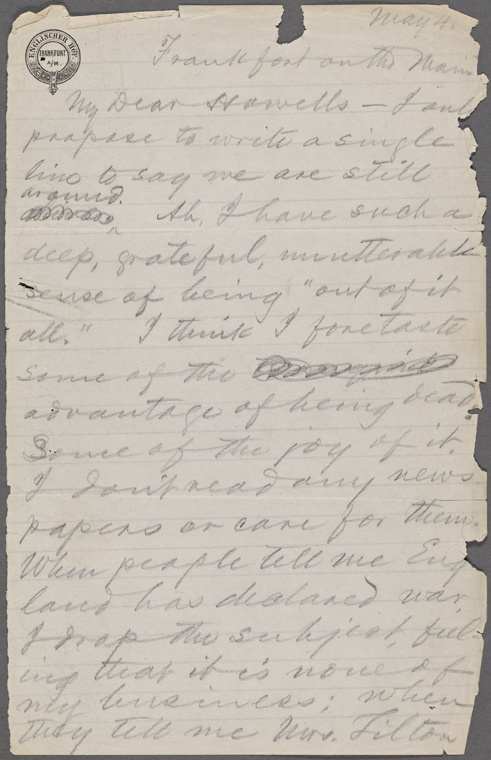 May 4.
ENGLISCHER HOF
FRANKFURT
a/M.
Frankfort on the Main
My Dear Howells — I onl
propose to write a single
line to say we are still
around.
Ah, I have such a
deep, grateful, unutterable
sense of being "out of it
all." I think I foretaste
some of the
advantage of being dead.
Some of the joy of it.
I don't read any news-
papers or care for them.
When people tell me Eng
land has declared war,
I drop the subject, feel-
ing that it is none of
my business; when
they tell me Mrs. Tilton